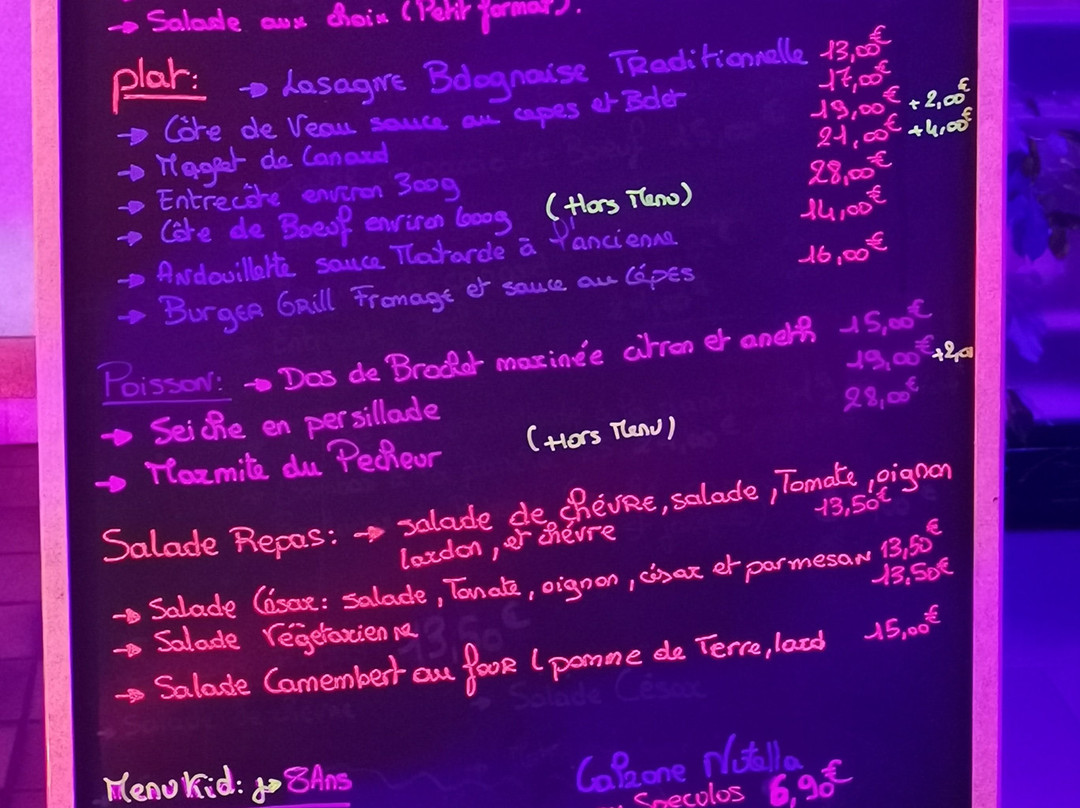 → Salade aux choix (Petit format).
Plat: → Lasagne Bolognaise Traditionnelle 13,00€
→ Côte de Veau sauce au cepes et Bolet 17,00€
→ Magret de Canard 19,00€ +2,00€
→ Entrecôte environ 300g 21,00€ +4,00€
→ Côte de Boeuf environ 600g (Hors Menu) 28,00€
→ Andouillette sauce Moutarde à l'ancienne 14,00€
→ Burger Grill Fromage et sauce au Cépes 16,00€
Poisson: → Dos de Brochet marinée citron et aneth 15,00€
→ Seiche en persillade 19,00€ +2,0
→ Marmite du Pecheur (Hors Menu) 28,00€
Salade Repas: → salade de chévre, salade, Tomate, oignon
lardon, et chévre 13,50€
→ Salade César: salade, Tomate, oignon, césar et parmesan 13,50€
→ Salade Végétarienne 13,50€
→ Salade Camembert au four (pomme de Terre, lard 15,00€
Menu Kid: → 8Ans
Calzone Nutella
Speculos 6,90€